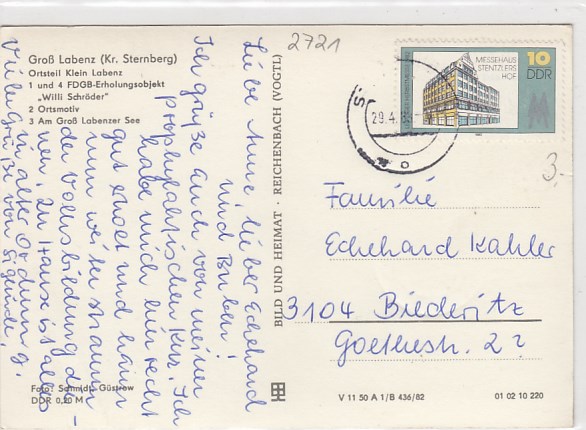 2721
Groß Labenz (Kr. Sternberg)
Ortsteil Klein Labenz
1 und 4 FDGB-Erholungsobjekt
„Willi Schröder"
2 Ortsmotiv
3 Am Groß Labenzer See
Foto: Schmidt, Güstrow
DDR 0,20 M
BILD UND HEIMAT · REICHENBACH (VOGTL)
V 11 50 A 1/B 436/82
01 02 10 220
MESSEHAUS
STENTZLERS
HOF
10
DDR
29.4.83
3.-
Familie
Eckehard Kahler
3104 Biederitz
Goethestr. 2
Liebe Anne, lieber Eckehard
und
Ich grüße Euch von meiner
prophylaktischen Kur. Ich
habe mich hier recht
gut erholt und kann
nun weiter stramm
der Volksbildung die-
nen. Zu Hause ist alles
in alter Ordnung.
Viele Grüße von